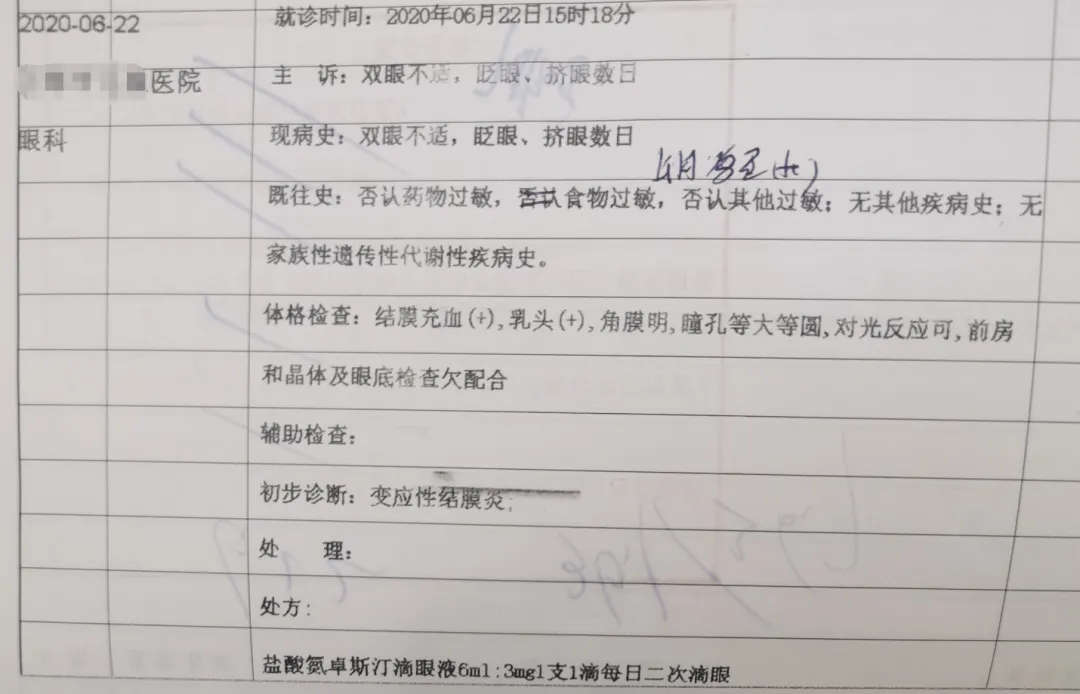 2020-06-22
就诊时间：2020年06月22日15时18分
医院
主 诉：双眼不适，眨眼、挤眼数日
眼科
现病史：双眼不适，眨眼、挤眼数日
既往史：否认药物过敏，否认食物过敏，否认其他过敏；无其他疾病史；无
家族性遗传性代谢性疾病史。
体格检查：结膜充血(+),乳头(+),角膜明,瞳孔等大等圆,对光反应可,前房
和晶体及眼底检查欠配合
辅助检查：
初步诊断：变应性结膜炎;
处 理：
处方:
盐酸氮卓斯汀滴眼液6ml:3mg1支1滴每日二次滴眼